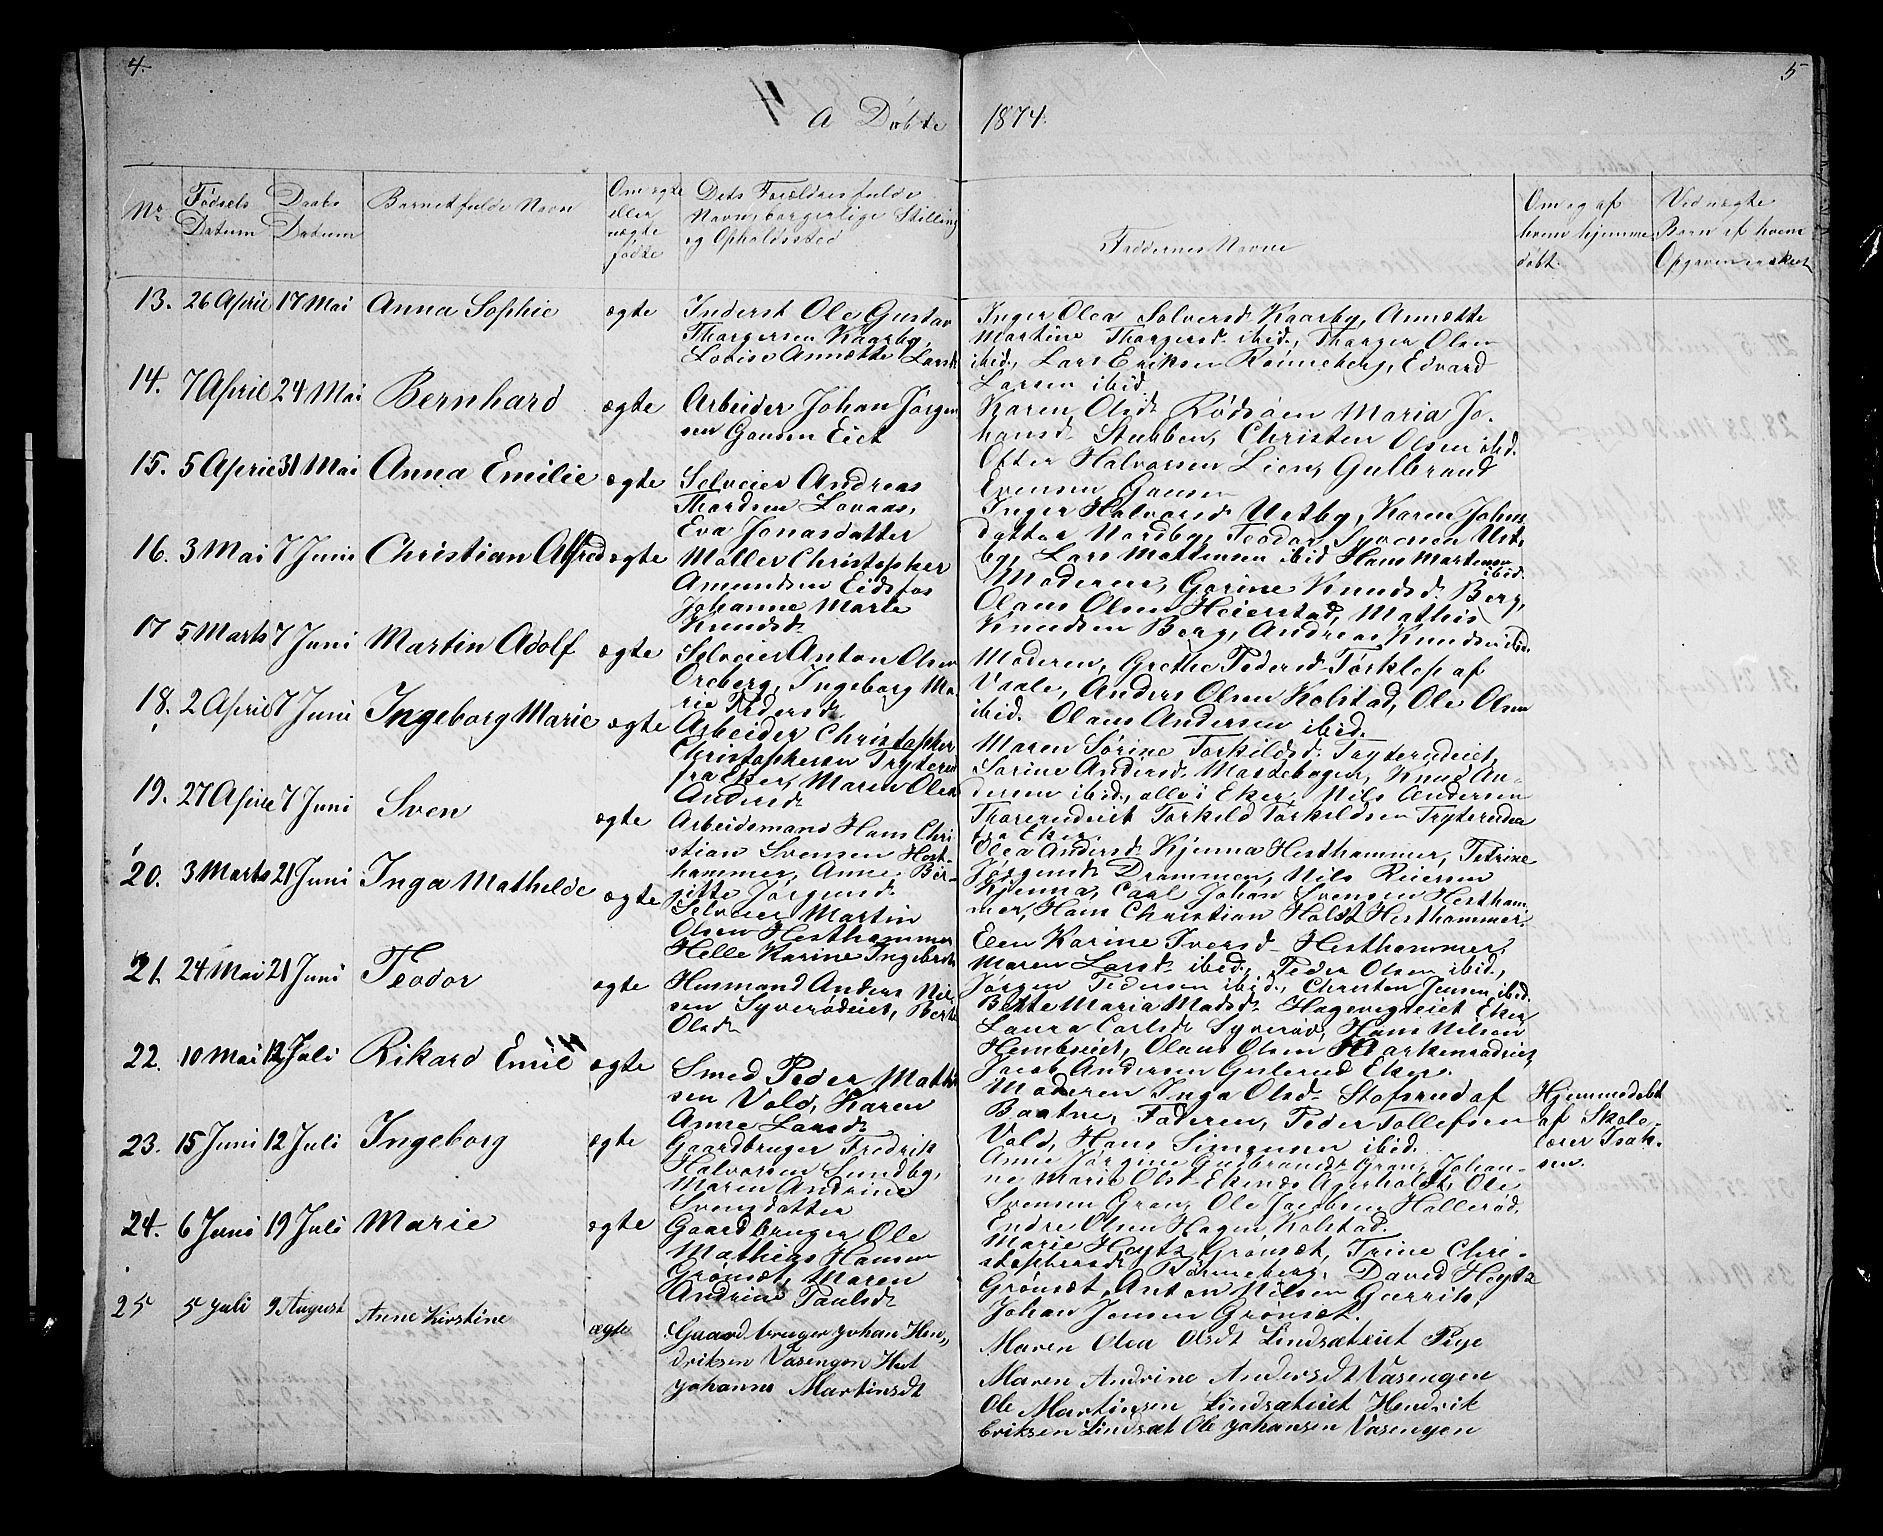 4.
5
4
A Døbte
1874.
No
Fødsels
Datum
Daabs
Datum
Barnets fulde Navn
Om ægte
eller
uægte
fødte
Dets Forældres fulde
Navn, borgerlige Stilling
og Opholdssted
Faddernes Navne
Om og af
hvem hjemme
døbt.
Ved uægte
Barn af hvem
Opgaven er skeet
13. 26 April 17 Mai Anna Sophie ægte
Inderst Ole Gustav
Thorgersen Kaarby,
Lovise Annætte Larsd.
Inger Olea Solversd. Kaarby, Annætte
Martine Thorgersd. ibid., Thorger Olsen
ibid., Lars Eriksen Rønneberg, Edvard
Larsen ibid.
14. 7 April 24 Mai Bernhard ægte
Arbeider Johan Jørgen
sen Gausen Eiet
Karen Olsd. Rødsaen Maria Jo-
hansd. Stubben, Christen Olsen ibid.
Ofter Halvorsen Lien, Gulbrand
Evensen Gausen
15. 5 April 31 Mai Anna Emilie ægte
Selveier Andreas
Thordsen Lovaas,
Eva Jonasdatter
Inger Halvorsd. Vestby, Karen Johns
datter Nordby, Teodor Syvensen Vest
by, Lars Mathisen ibid Hans Martinsen
ibid.
16. 3 Mai 7 Juni Christian Alfred ægte
Møller Christopher
Amundsen Eidsfos
Johanne Marie
Knudsd.
Moderen, Gorine Knudsd. Berg,
Olaus Olsen Heierstad, Mathis
Knudsen Berg, Andreas Knudsen ibid.
17 5 Marts 7 Juni Martin Adolf ægte
Selveier Anton Olsen
Oreberg, Ingeborg Ma-
rie Pedersd.
Moderen, Grethe Pedersd. Torklep af
Vaale, Anders Olsen Kolstad, Ole Olsen
ibid. Olaus Andersen ibid.
18. 2 April 7 Juni Ingeborg Marie ægte
Arbeider Christopher
Christophersen Tryterud
fra Eker, Maren Olea
Andersd.
Maren Sørine Torkildsd. Tryterudeiet,
Sørine Andersd. Mastebogen, Knud An-
dersen ibid., alle i Eker, Nils Andersen
Thorerudeiet Torkild Torkildsen Tryteruden
fra Eker
19. 27 April 7 Juni Sven ægte
Arbeidsmand Hans Chri
stian Svensen Hest-
hammer, Anne Bir-
gitte Jørgensd.
Olea Andersd. Kjenna Hesthammer, Petrine
Jørgensd. Drammen, Nils Reiersen
Kjenna, Carl Johan Svensen Hestham
mer, Hans Christian Holst Hesthammer.
20. 3 Marts 21 Juni Inga Mathelde ægte
Selveier Martin
Olsen Hesthammer
Helle Karine Ingebretsd.
Elen Karine Iversd. Hesthammer,
Maren Larsd. ibid., Peder Olsen ibid.,
Jørgen Pedersen ibid., Christen Jensen ibid.
21. 24 Mai 21 Juni Teodor ægte
Husmand Anders Nil-
sen Syverødeiet, Berte
Olsd.
Bette Maria Madsd. Hagevegseiet Eker
Laura Carlsd. Syverød, Hans Nilsen
Hembseiet, Olaus Olsen Markensrødeiet
Jacob Andersen Gulerud Eker.
22. 10 Mai 12 Juli Rikard Emil ægte
Smed Peder Mathi
sen Vold, Karen
Anne Larsd.
Moderen Inga Olsd. Stofsrud af
Baatne, Faderen, Peder Tollefsen
Vold, Hans Simensen ibid.
Hjemmedøbt
af Skole-
lærer Isak-
sen.
23. 15 Juni 12 Juli Ingeborg ægte
Gaardbruger Fredrik
Halvorsen Sundby,
Maren Andrine
Svensdatter
Anne Jørgine Gulbrandsd. Gran, Johan-
ne Marie Olsd. Ekenæs Agerholdt, Ole
Svensen Gran, Ole Jacobsen Hallerød,
Endre Olsen Hagen, Kolstad.
24. 6 Juni 19 Juli Marie ægte
Gaardbruger Ole
Mathias Hansen
Grønsæt, Maren
Andrine Paulsd.
Marie Heytz Grønsæt, Trine Chri-
stophersd. Rønneberg, David Heytz
Grønsæt, Anton Nilsen Gjerrik,
Johan Jensen Grønsæt.
25 5 Juli 9 August Anne Kirstine ægte
Gaardbruger Johan Hen-
driksen Vasengen Hut
Johanne Martinsdt
Maren Olea Olsdt Lindsateiet Pige
Maren Andrine Andersdt Vasengen
Ole Martinsen Lindsateiet Hendrik
Eriksen Lindsæt Ole Johansen Vasengen